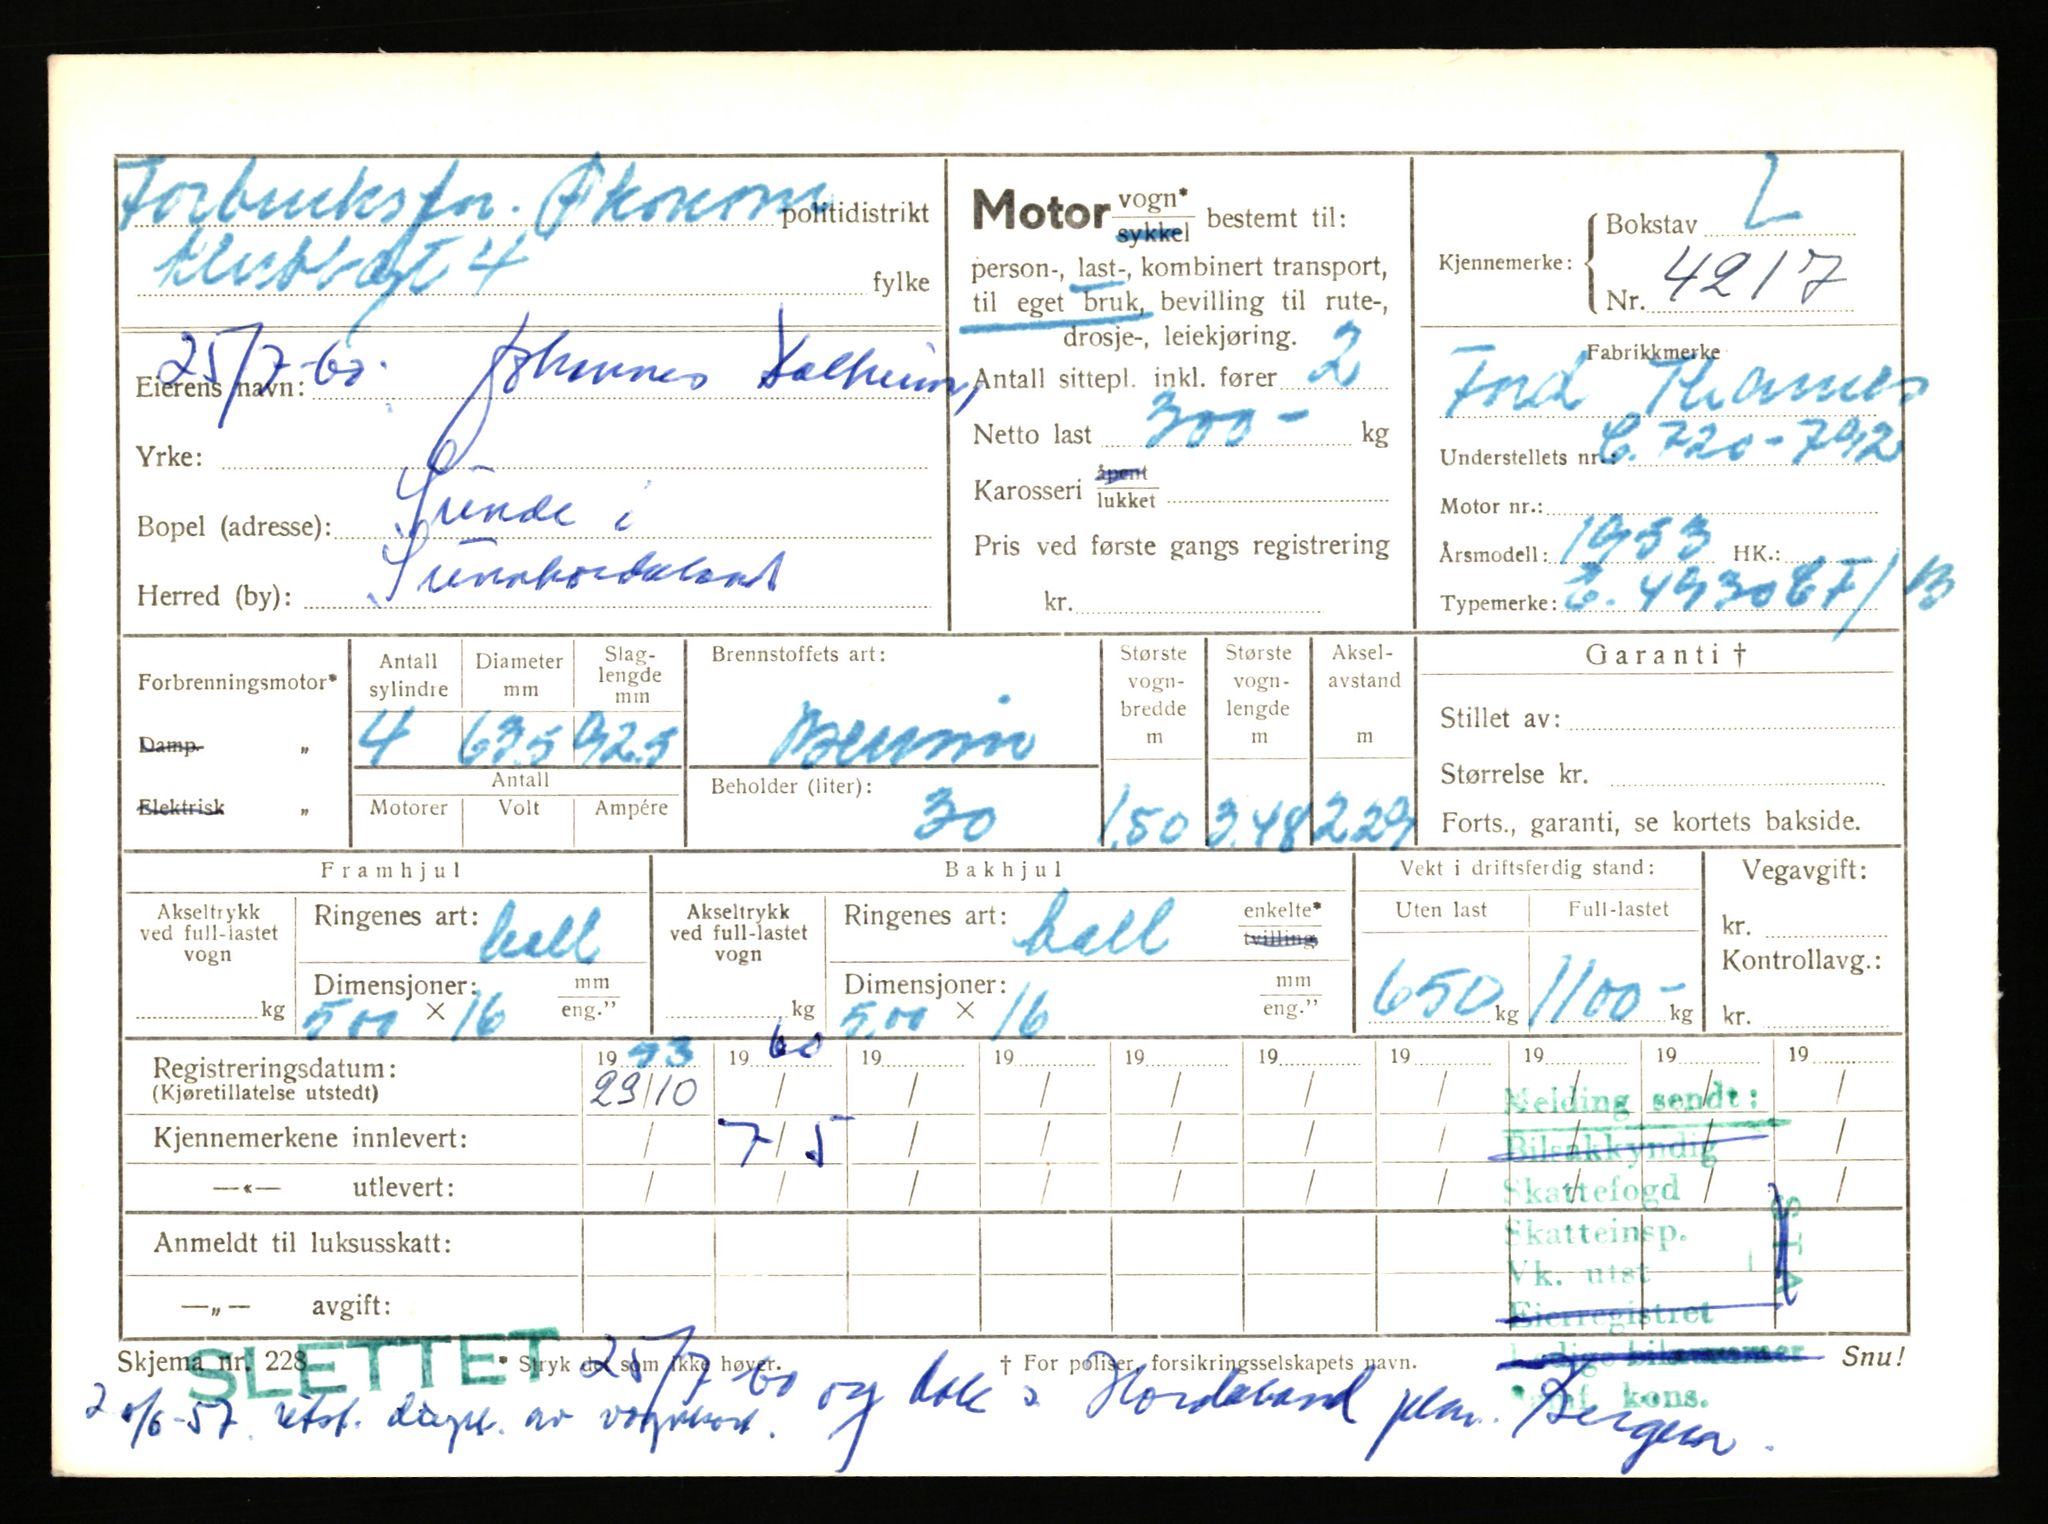 Forbruksfor. Økonomi politidistrikt
4 fylke
25/7-60. Johannes Valheim,
Eierens navn:
Yrke:
Bopel (adresse): Sunde i
Herred (by): Sunnhordaland
Motor vogn* sykkel bestemt til:
person-, last-, kombinert transport,
til eget bruk, bevilling til rute-,
drosje-, leiekjøring.
Antall sittepl. inkl. fører 2
Netto last 300- kg
Karosseri åpent lukket
Pris ved første gangs registrering
kr.
Kjennemerke: Bokstav L
Nr. 4217
Fabrikkmerke
Ford Thames
Understellets nr.: C. 720-792
Motor nr.:
Årsmodell: 1953 HK.:
Typemerke: E. 493 0 CF/B
Forbrenningsmotor*
Damp. „
Elektrisk „
Antall sylindre Diameter mm Slaglengde mm
4 63.5 92.5
Antall
Motorer Volt Ampére
Brennstoffets art:
Bensin
Beholder (liter):
30
Største vognbredde m
1,50
Største vognlengde m
3.48
Akselavstand m
229
Garanti †
Stillet av:
Størrelse kr.
Forts., garanti, se kortets bakside.
Framhjul
Akseltrykk ved full-lastet vogn
kg
Ringenes art: ball
Dimensjoner: mm
5,00 × 16 eng."
Bakhjul
Akseltrykk ved full-lastet vogn
kg
Ringenes art: ball enkelte* tvilling
Dimensjoner: mm
5,00 × 16 eng."
Vekt i driftsferdig stand:
Uten last Full-lastet
650 kg 1100- kg
Vegavgift:
kr.
Kontrollavg.:
kr.
Registreringsdatum: 19 53 19 60 19 19 19 19 19 19 19 19
(Kjøretillatelse utstedt) 29/10 / / / / / / / / /
Kjennemerkene innlevert: / 7/5 / / / / / / / /
—«— utlevert: / / / / / / / / / /
Anmeldt til luksusskatt:
—„— avgift:
Melding sendt:
Bilsakkyndig
Skattefogd
Skatteinsp.
Vk. utst
Eierregistret
Ledige bilnummer
kons.
Skjema nr. 228 * Stryk det som ikke høver. † For poliser, forsikringsselskapets navn. Snu!
SLETTET 25/7-60 og Hordaland Bergen.
20/6-57. utst. dupl. av vognkort.